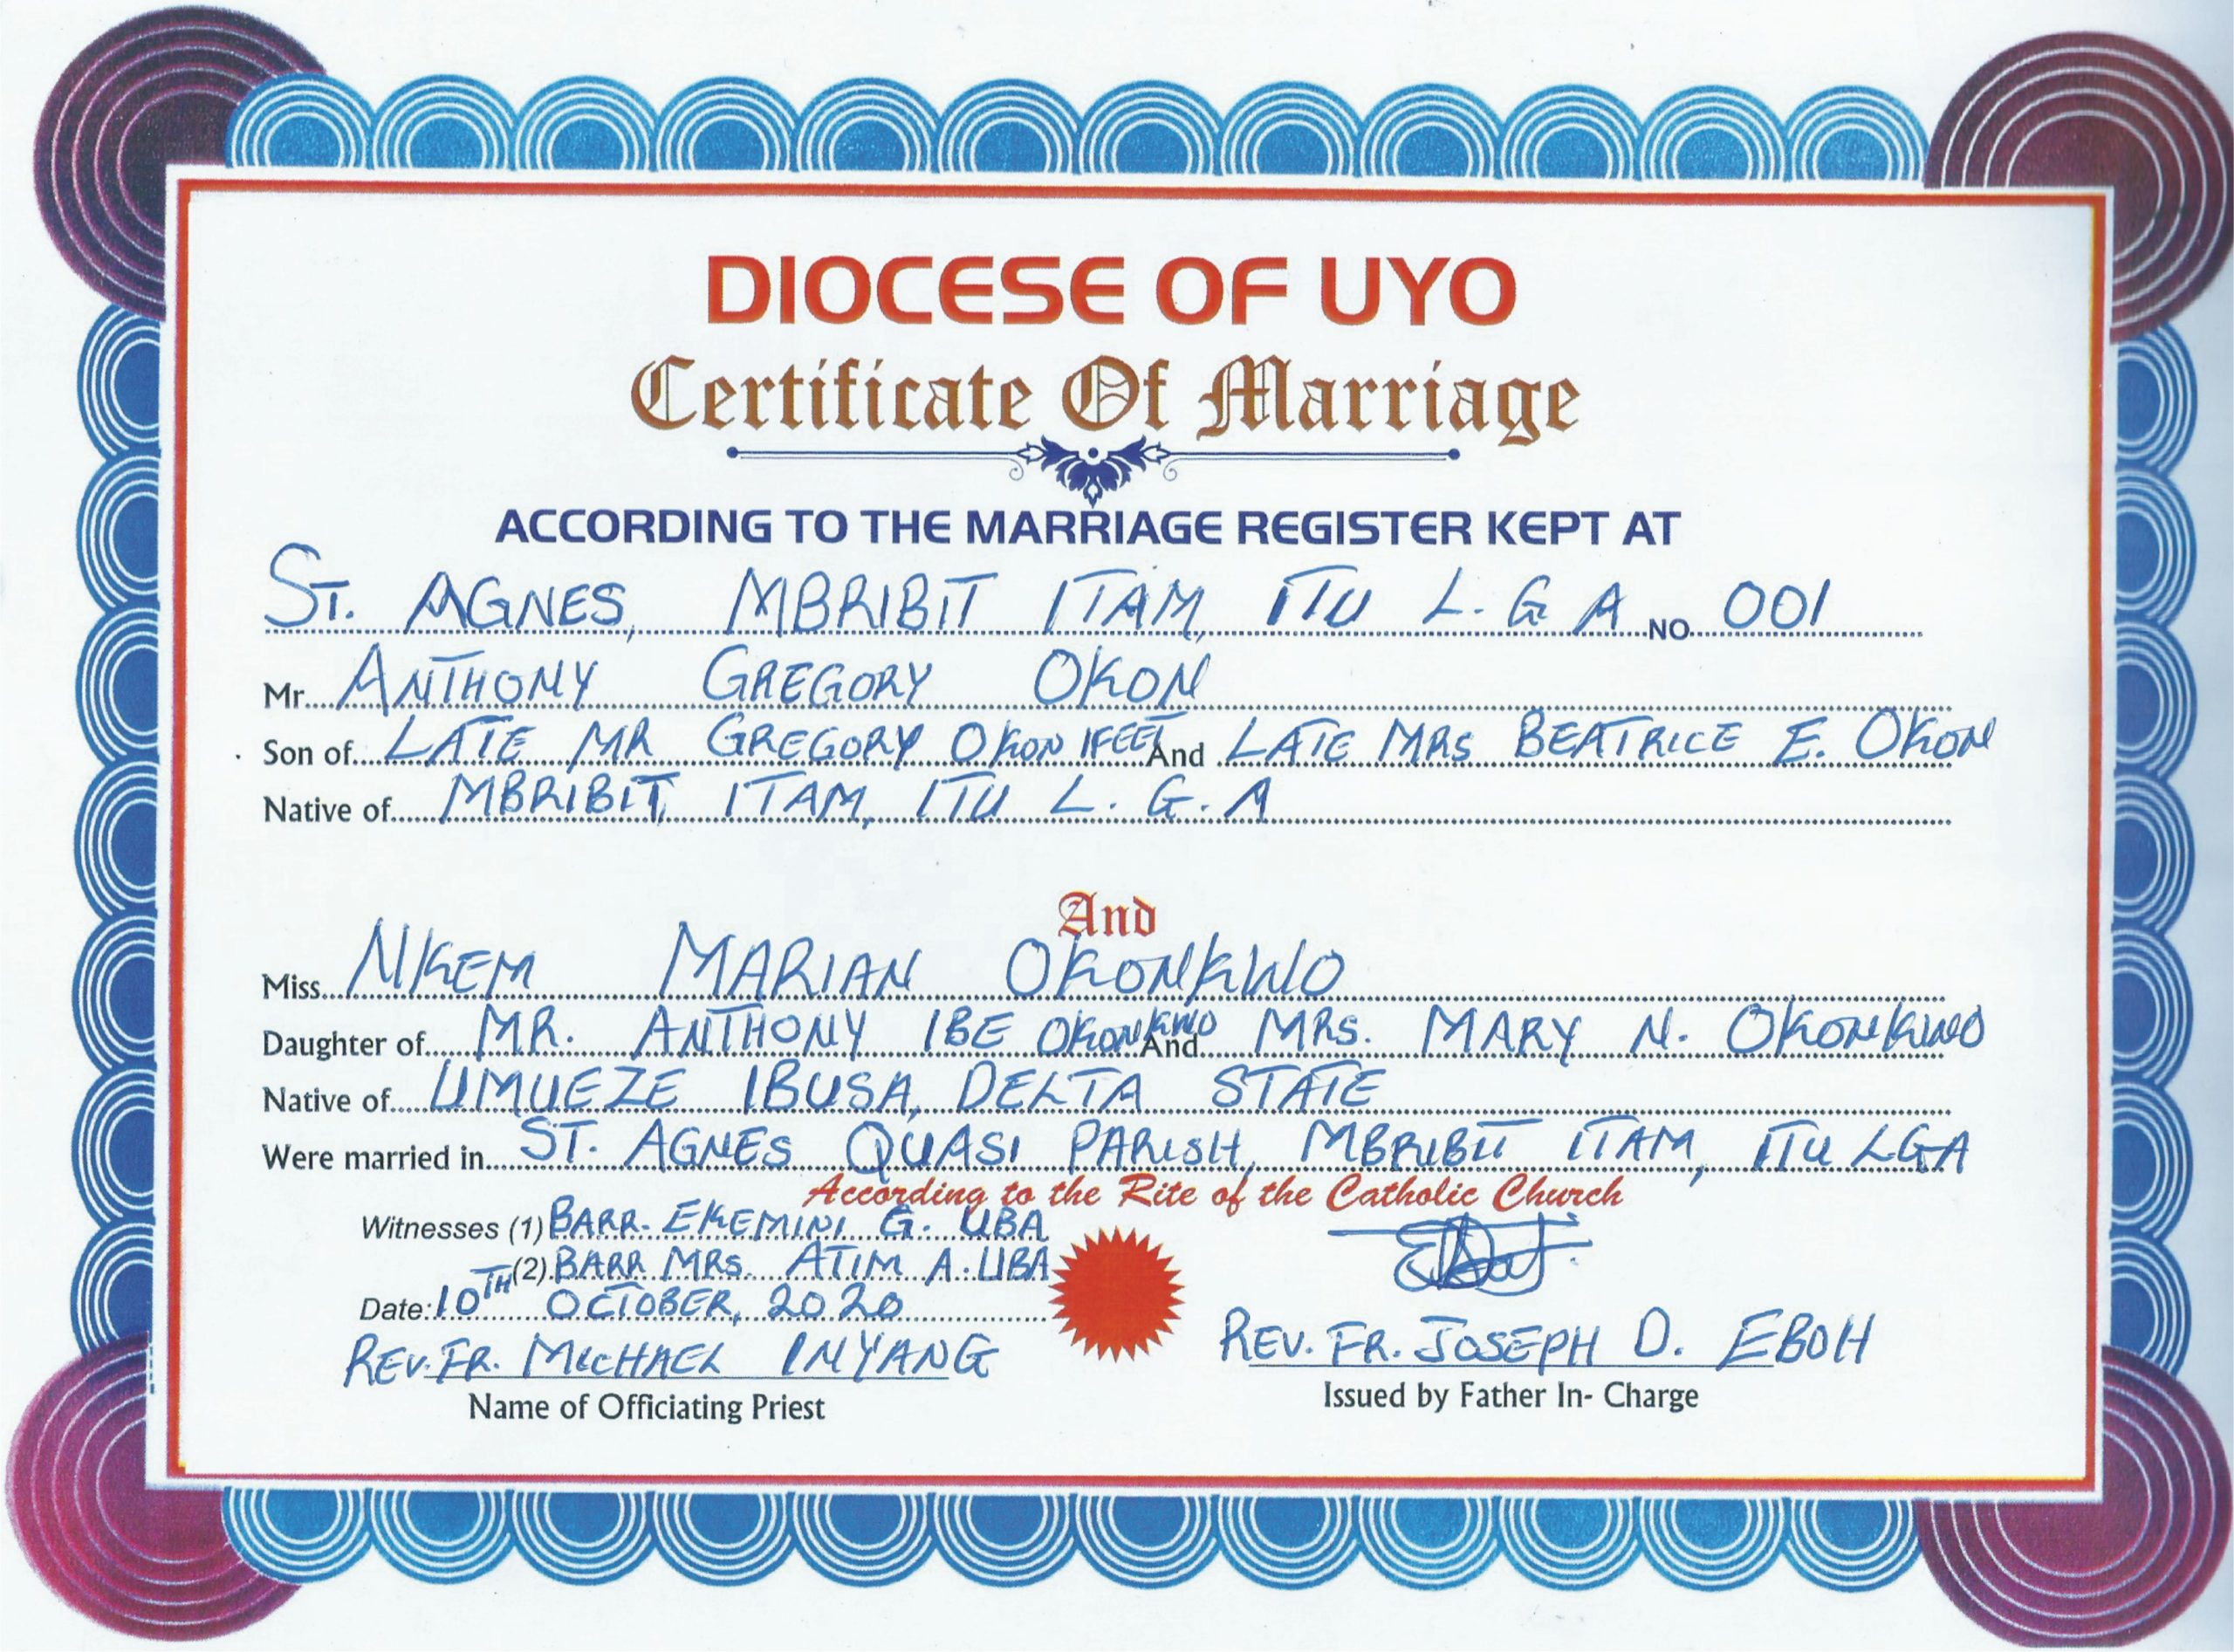 DIOCESE OF UYO
Certificate Of Marriage
ACCORDING TO THE MARRIAGE REGISTER KEPT AT
ST. AGNES, MBRIBIT ITAM, ITU L. G A NO. 001
Mr. ANTHONY GREGORY OKON
Son of LATE MR GREGORY OKON IFEET And LATE MRS BEATRICE E. OKON
Native of MBRIBIT, ITAM, ITU L. G. A
And
Miss NKEM MARIAN OKONKWO
Daughter of MR. ANTHONY IBE OKONKWO And MRS. MARY N. OKONKWO
Native of UMUEZE IBUSA, DELTA STATE
Were married in ST. AGNES QUASI PARISH, MBRIBIT ITAM, ITU LGA
According to the Rite of the Catholic Church
Witnesses (1) BARR. EKEMINI G. UBA
(2) BARR MRS. ATIM A. UBA
Date: 10TH OCTOBER, 2020
REV. FR. MICHAEL INYANG
Name of Officiating Priest
REV. FR. JOSEPH D. EBOH
Issued by Father In- Charge